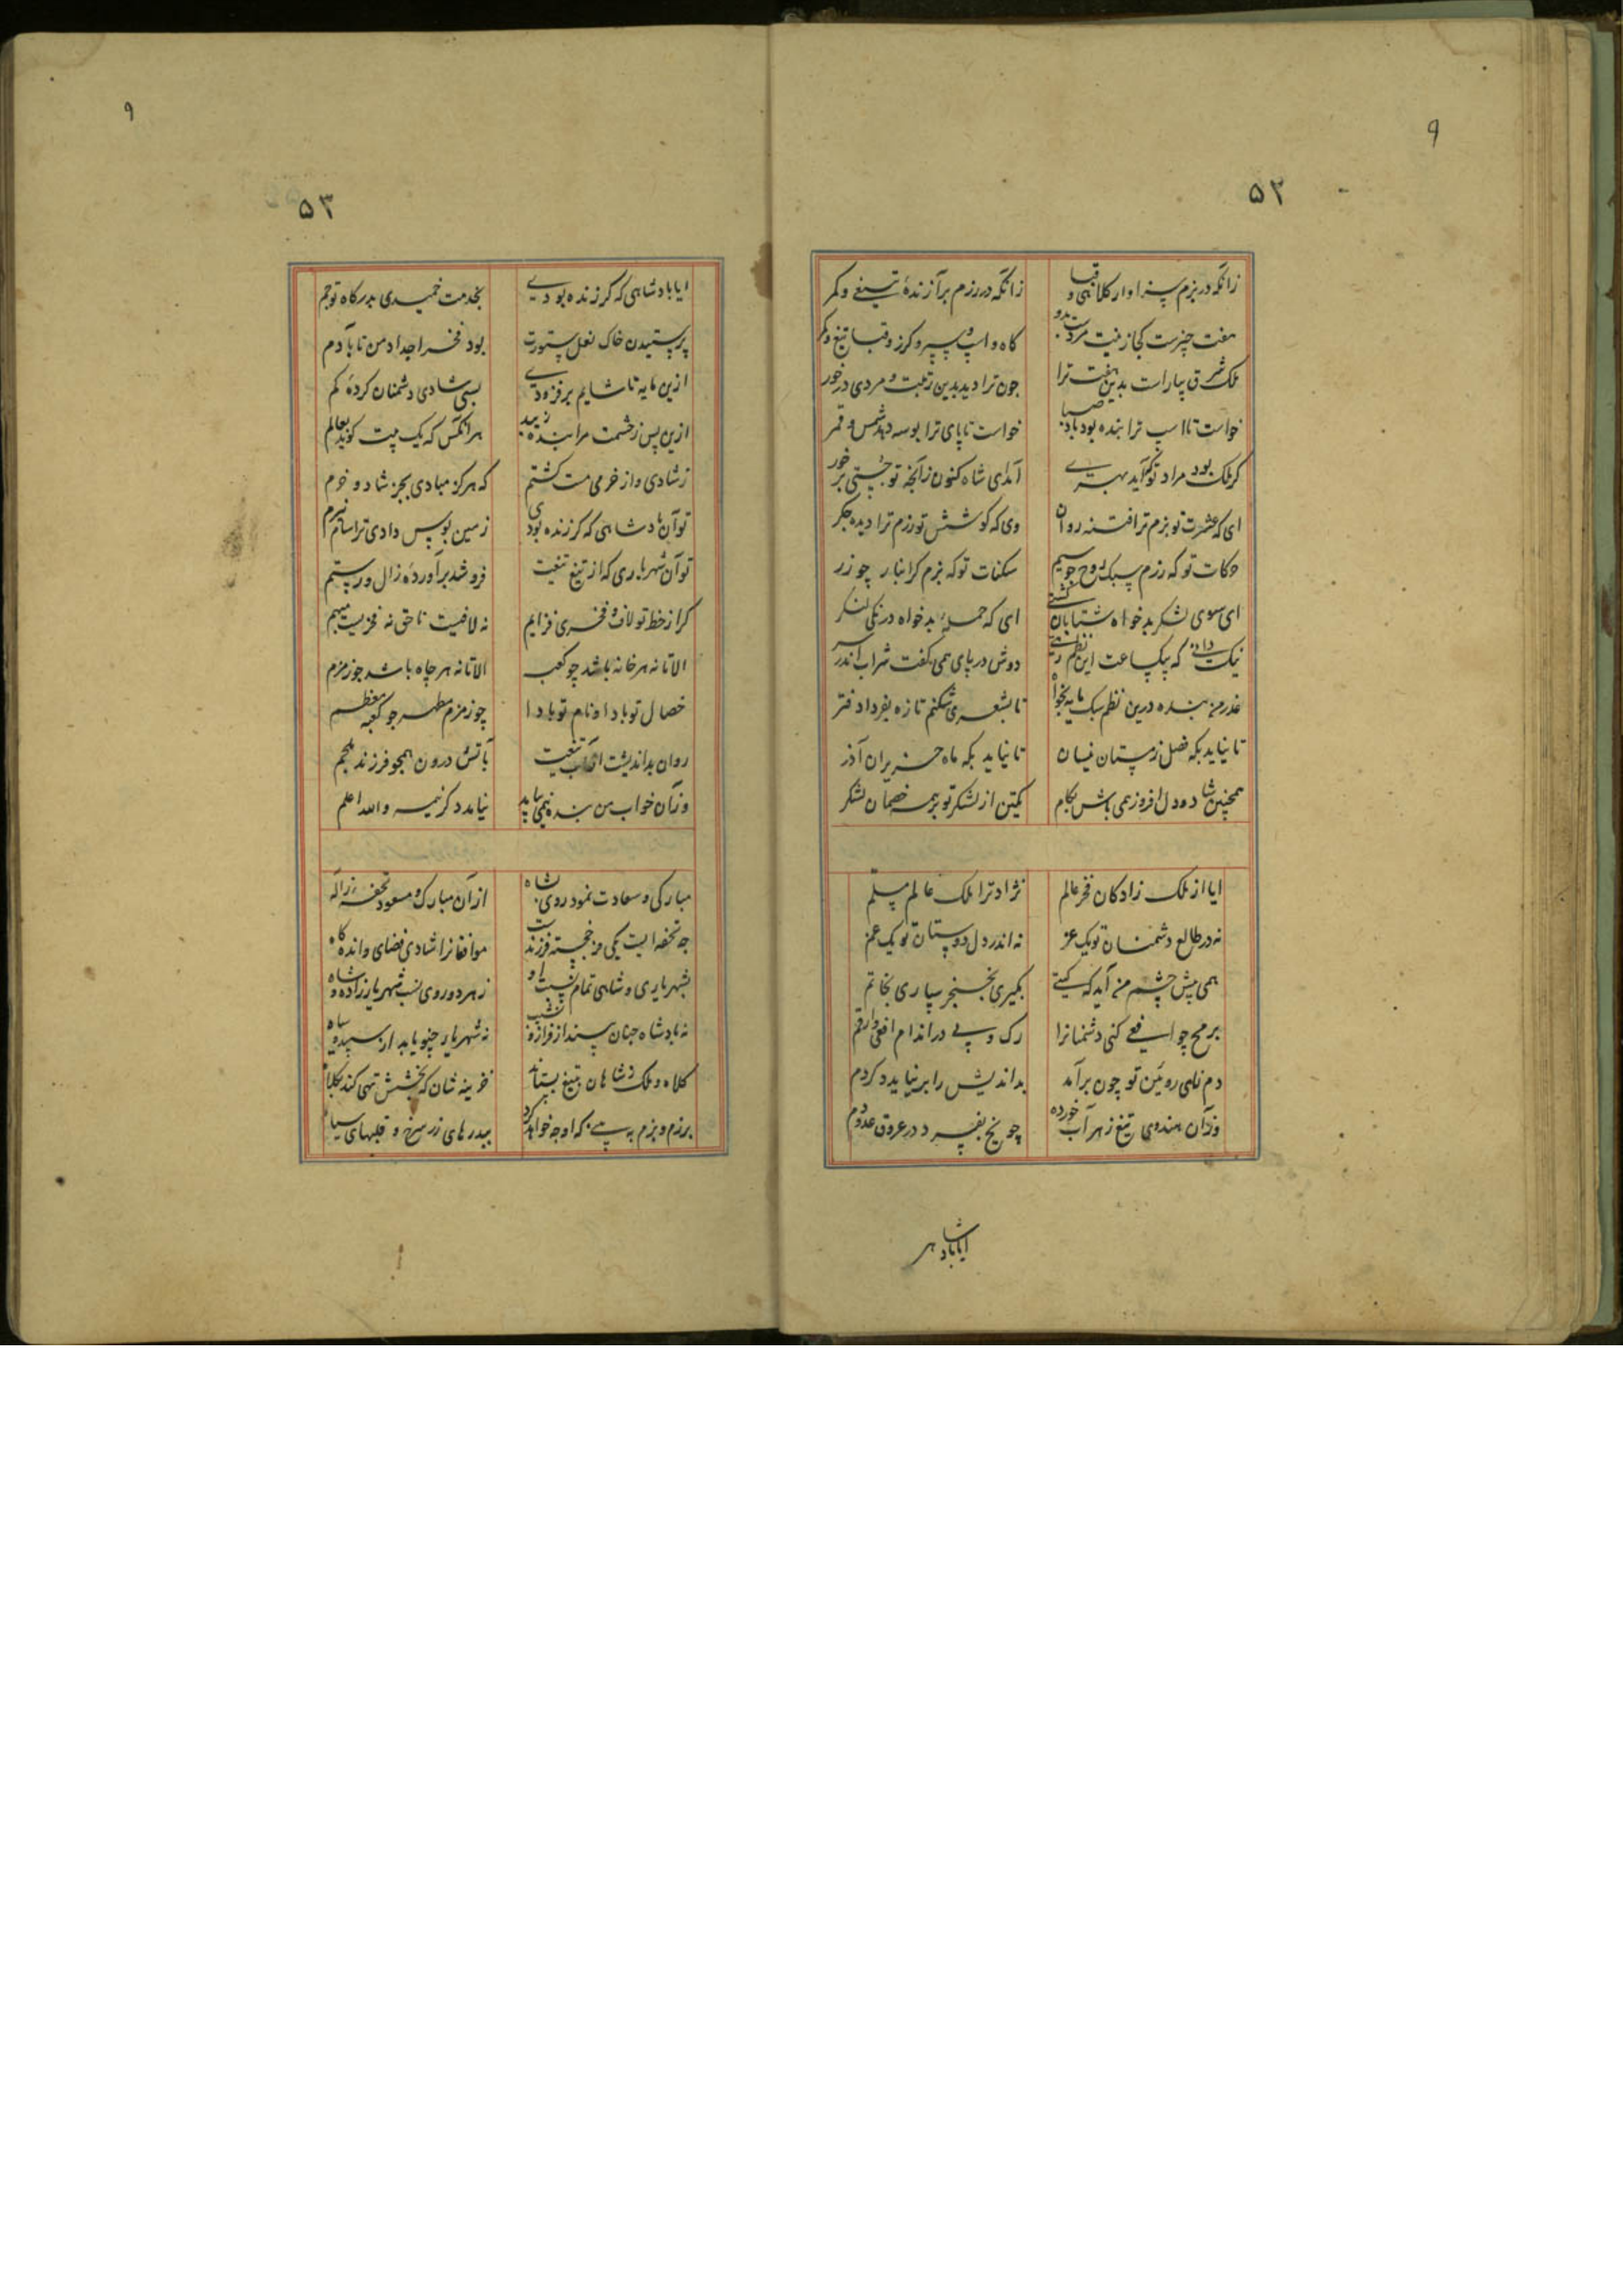 ۹
۵۲
زانکه در بزم سزاوار کلاهی و قبا زانکه در رزم برآزندهٔ تیغی و کمر
هفت چیزست کجا زینت مردست بدو گاه و اسپ و سپر و گرز و قبا تیغ و کمر
ملک شرق بیاراست بدین هفت ترا چون ترا دید بدین رتبت و مردی در خور
خواست تا اسب ترا بنده بود باد صبا خواست تا پای ترا بوسه دهد شمس و قمر
گر ملک بود مراد تو آمد ای شاه کنون زآنچه تو جستی بر خور
ای که عشرت تو بزم ترا فتنه روان وی که کوشش تو رزم ترا دیده جگر
حرکات تو که رزم سبک روح چو سیم سکنات تو که بزم گرانبار چو زر
ای سوی لشکر بدخواه شتابان کشتی ای که حملهٔ بدخواه درنگی لنگر
نیک که یکساعت این نظم دوش در پای همی گفت شراب اندر سر
عذر من بنده درین نظم سبک مایه بخواه تا بشعری شکنم تازه بفردا دفتر
تا نیاید بگه فصل زمستان نیسان تا نیاید بگه ماه حزیران آذر
همچنین شاد و دل افروز همی باش بکام کمتین از لشکر تو بر همه خصمان لشکر
ایا از ملک زادگان فخر عالم نژاد ترا ملک عالم مسلم
نه در طالع دشمنان تو یک عز نه اندر دل دوستان تو یک غم
همی پیش چشم من آید که گیتی بگیری بخنجر سپاری بخاتم
برمح چو افعی کنی دشمنانرا رگ و پی در اندام افعی و ارقم
دم نای رویین تو چون برآمد بداندیش را بر نیاید دگر دم
وزآن هندوی تیغ زهر آب خورده چو یخ بفسرد در عروق عدو دم
ایا پادشاهی
۹
۵۳
ایا پادشاهی که گر زنده بودی بخدمت خمیدی بدرگاه تو جم
پرستیدن خاک نعل ستورت بود فخر اجداد من تا بآدم
ازین مایه تا شایم برفزودی بسی شادی دشمنان کردهٔ کم
ازین پس ز حشمت مرا بنده زیبد هر آنکس که یک بیت گوید بعالم
ز شادی و از خرمی مست گشتم که هرگز مبادی بجز شاد و خرم
تو آن پادشاهی که گر زنده بودی زمین بوس دادی ترا سام نیرم
تو آن شهریاری که از تیغ تیغت فرو شد برآوردهٔ زال و رستم
گر از خط تو لاف و فخری فزایم نه لافیست ناحق نه فخریست مبهم
الا تا نه هر خانه باشد چو کعبه الا تا نه هر چاه باشد چو زمزم
خصال تو بادا و نام تو بادا چو زمزم مطهر چو کعبه معظم
روان بداندیشت از آب تیغت بآتش درون همچو فرزند ملجم
وزآن خواب من بنده نیاید دگر نیمه والله اعلم
مبارکی و سعادت نمود روی بشاه از آن مبارک و مسعود تحفه ز اله
چه تحفه ایست یکی مر خجسته فرزندست موافقانرا شادی فزای و انده کاه
بشهریاری و شاهی تمام نسبت او ز هر دو روی نسب شهریار زاده و شاه
نه پادشاه چنان بیند از فراز و نشیب نه شهریار چنو یابد از سپید و سیاه
کلاه و ملک ز شاهان بتیغ بستاند خزینه شان که بخشش تهی کند بکلاه
برزم و بزم پی که او چه خواهد کرد ببدرهای زر سرخ و قلبهای سپاه